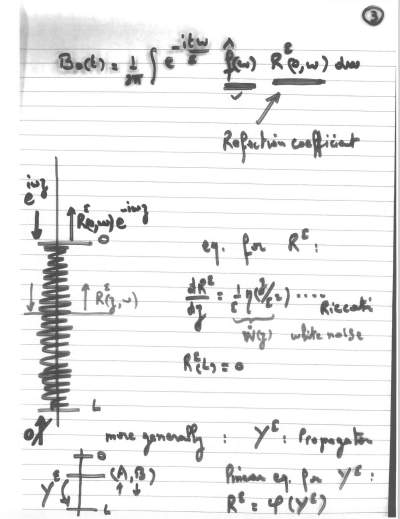 3
B₀(t) = 1/2π ∫ e^{-itω/ε} f̂(ω) R^ε(0,ω) dω
Reflection coefficient
e^{iωz}
R^ε(0,ω) e^{-iωz}
0
eq. for R^ε :
dR^ε/dz = 1/ε η(z/ε²) .... Riccati
R^ε(z,ω)
Ẇ(z) white noise
R^ε(L) = 0
L
0
more generally : Y^ε : Propagator
0
Y^ε (A,B)
L
Linear eq. for Y^ε :
R^ε = φ(Y^ε)